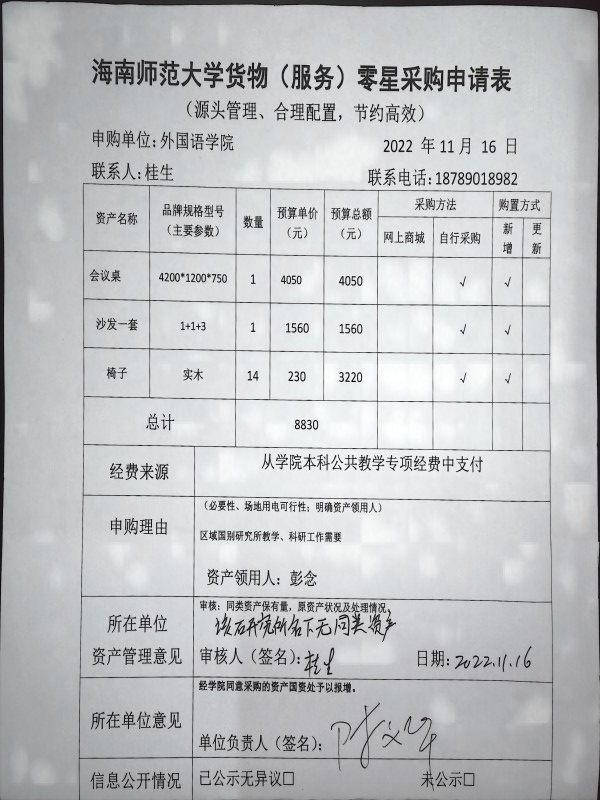 海南师范大学货物（服务）零星采购申请表
（源头管理、合理配置，节约高效）
申购单位：外国语学院 2022 年 11 月 16 日
联系人：桂生 联系电话：18789018982
资产名称 品牌规格型号（主要参数） 数量 预算单价（元） 预算总额（元） 采购方法 购置方式
网上商城 自行采购 新增 更新
会议桌 4200*1200*750 1 4050 4050 √ √
沙发一套 1+1+3 1 1560 1560 √ √
椅子 实木 14 230 3220 √ √
总计 8830
经费来源 从学院本科公共教学专项经费中支付
申购理由 （必要性、场地用电可行性；明确资产领用人）
区域国别研究所教学、科研工作需要
资产领用人：彭念
所在单位资产管理意见 审核：同类资产保有量，原资产状况及处理情况。
该研究所名下无同类资产
审核人（签名）：桂生 日期：2022.11.16
所在单位意见 经学院同意采购的资产国资处予以报增。
单位负责人（签名）：
信息公开情况 已公示无异议□ 未公示□